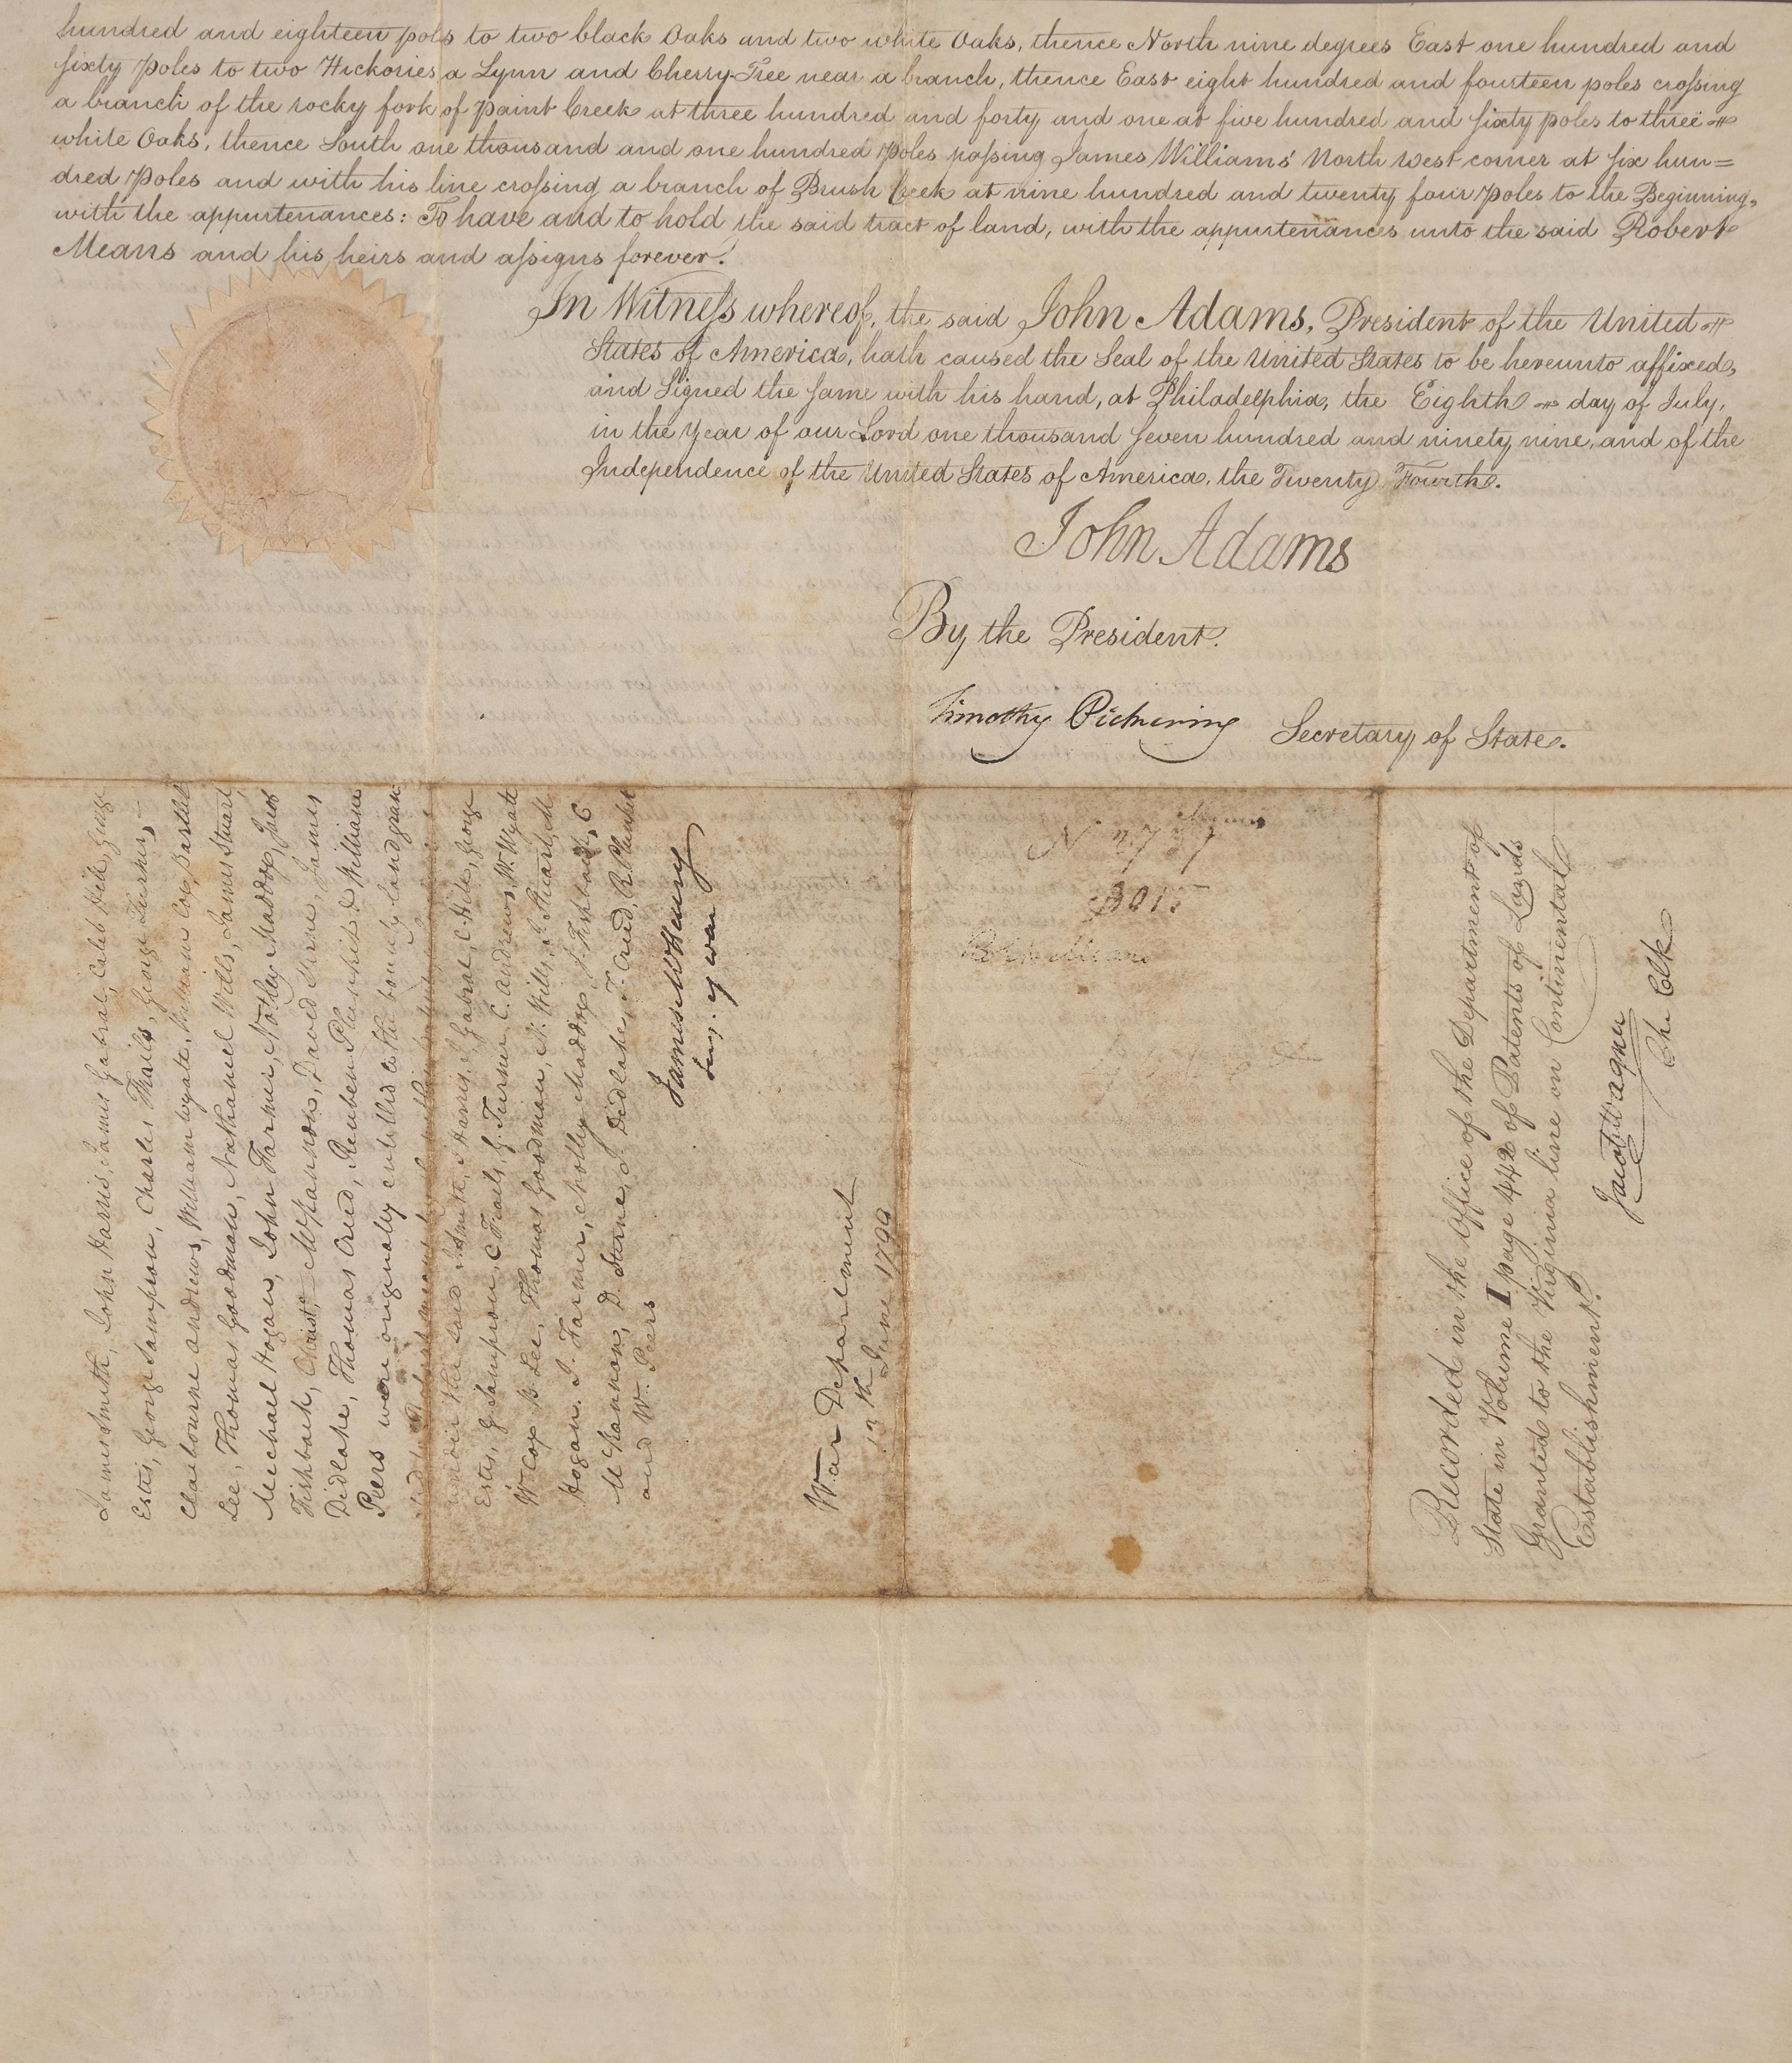 hundred and eighteen pols to two black Oaks and two white Oaks, thence North nine degrees East one hundred and
sixty Poles to two Hickories a Lynn and Cherry-Tree near a branch, thence East eight hundred and fourteen poles crossing
a branch of the rocky fork of Paint Creek at three hundred and forty and one at five hundred and sixty poles to three
white Oaks, thence South one thousand and one hundred Poles passing James Williams' North west corner at six hun=
dred Poles and with his line crossing a branch of Brush Creek at nine hundred and twenty four Poles to the Beginning,
with the appurtenances: To have and to hold the said tract of land, with the appurtenances unto the said Robert
Means and his heirs and assigns forever.
In Witness whereof, the said John Adams, President of the United
States of America, hath caused the Seal of the United States to be hereunto affixed,
and Signed the same with his hand, at Philadelphia, the Eighth day of July,
in the Year of our Lord one thousand seven hundred and ninety nine, and of the
Independence of the United States of America, the Twenty Fourth.
John Adams
By the President.
Timothy Pickering Secretary of State.
James Smith, John Harris, James Gabral, Caleb Hile, George
Estis, George Sampson, Charles Thails, George Turner,
Claibourne Andrews, William Wyatt, William Cox, Bartlet
Lee, Thomas Goodman, Nathaniel Wills, James Stuart,
Michael Hogan, John Farmer, Notley Maddox, Jacob
Fishback, Christ. McKannon, David Sterne, James
Didlake, Thomas Cred, Reuben Plunkitt & William
Peers were originally entitled to the bounty land
under the said J. Smith, J. Harris, J. Gabral, C. Hile, George
Estis, G. Sampson, C. Trails, G. Turner, C. Andrews, W. Wyatt
W. Cox, B. Lee, Thomas Goodman, N. Wills, J. Stuart, M.
Hogan, J. Farmer, Notley Maddox, J. Fishback, C
McKannon, D. Sterne, J. Didlake, T. Cred, R. Plunkit
and W. Peers
James McHenry
Secy. of war
War Department
13th June 1799
3015
Recorded in the Office of the Department of
State in Volume I page 442 of Patents of Lands
Granted to the Virginia line on Continental
Establishment.
Jacob Wagner
Ch. Clk